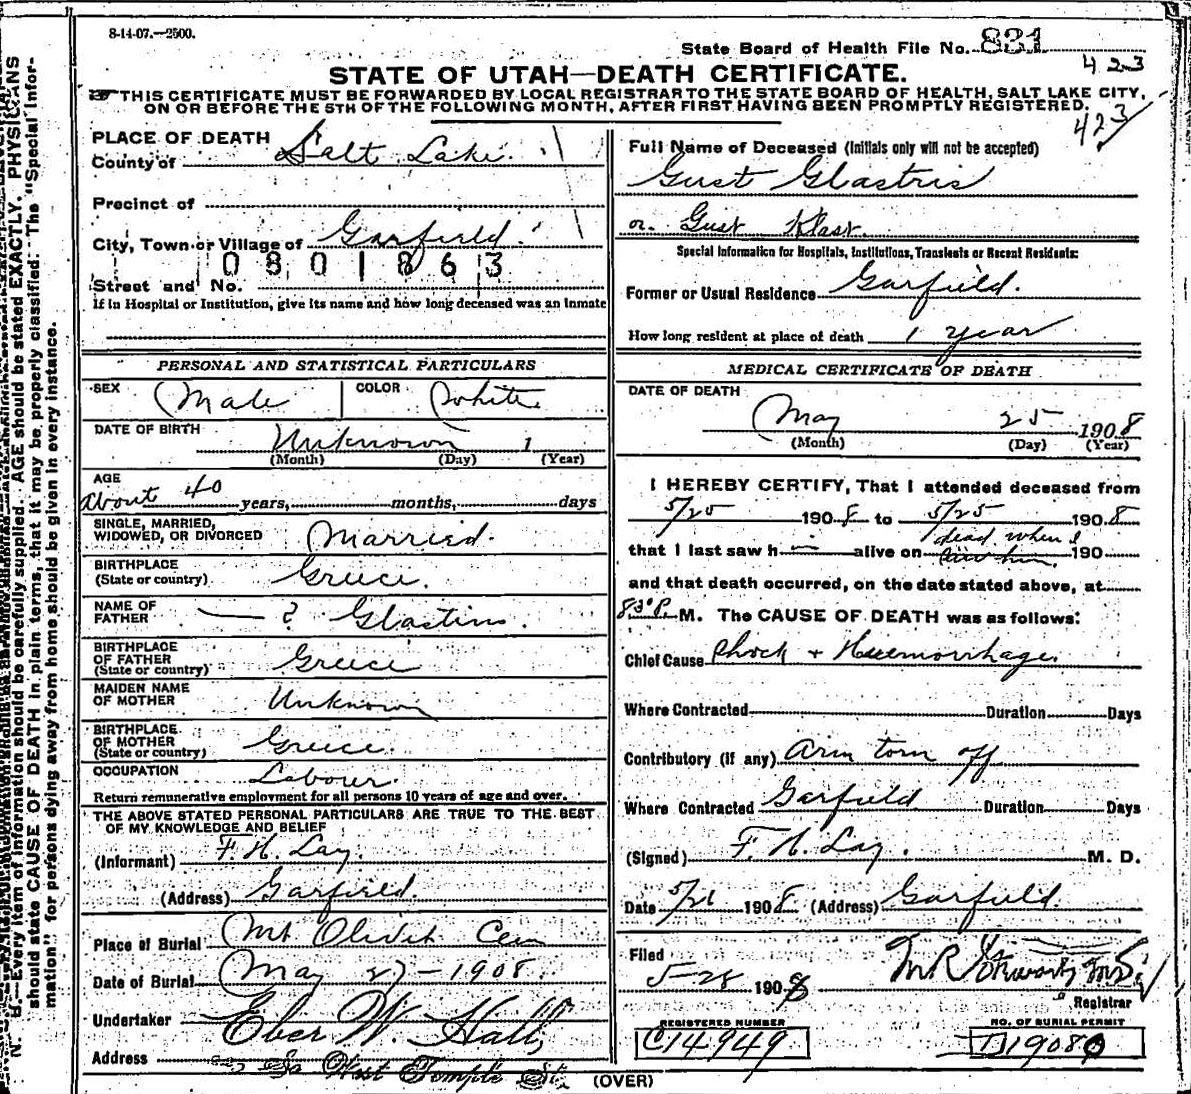 8-14-07.—2500.
State Board of Health File No. 831
423
STATE OF UTAH—DEATH CERTIFICATE.
THIS CERTIFICATE MUST BE FORWARDED BY LOCAL REGISTRAR TO THE STATE BOARD OF HEALTH, SALT LAKE CITY,
ON OR BEFORE THE 5TH OF THE FOLLOWING MONTH, AFTER FIRST HAVING BEEN PROMPTLY REGISTERED.
423
N. B.—Every item of information should be carefully supplied. AGE should be stated EXACTLY. PHYSICIANS
should state CAUSE OF DEATH in plain terms, that it may be properly classified. The "Special Infor-
mation" for persons dying away from home should be given in every instance.
PLACE OF DEATH
County of Salt Lake.
Precinct of
City, Town or Village of Garfield.
0801863
Street and No.
If in Hospital or Institution, give its name and how long deceased was an inmate
PERSONAL AND STATISTICAL PARTICULARS
SEX Male COLOR White
DATE OF BIRTH Unknown 1
(Month) (Day) (Year)
AGE
About 40 years, months, days
SINGLE, MARRIED,
WIDOWED, OR DIVORCED Married.
BIRTHPLACE
(State or country) Greece.
NAME OF
FATHER — ? Glastris.
BIRTHPLACE
OF FATHER
(State or country) Greece
MAIDEN NAME
OF MOTHER Unknown
BIRTHPLACE
OF MOTHER
(State or country) Greece.
OCCUPATION Labour.
Return remunerative employment for all persons 10 years of age and over.
THE ABOVE STATED PERSONAL PARTICULARS ARE TRUE TO THE BEST
OF MY KNOWLEDGE AND BELIEF
(Informant) F. H. Lay.
(Address) Garfield.
Place of Burial Mt Olivet Cem
Date of Burial May 27-1908.
Undertaker Eber W. Hall,
Address So West Temple St.
Full Name of Deceased (Initials only will not be accepted)
Gust Glastris
or Gust Klast.
Special Information for Hospitals, Institutions, Transients or Recent Residents:
Former or Usual Residence Garfield.
How long resident at place of death 1 year
MEDICAL CERTIFICATE OF DEATH
DATE OF DEATH
May 25 1908
(Month) (Day) (Year)
I HEREBY CERTIFY, That I attended deceased from
5/25 1908 to 5/25 1908
dead when I
that I last saw h im alive on saw him. 190
and that death occurred, on the date stated above, at
830 P. M. The CAUSE OF DEATH was as follows:
Chief Cause Shock + Haemorrhage.
Where Contracted Duration Days
Contributory (if any) Arm torn off
Where Contracted Garfield Duration Days
(Signed) F. H. Lay. M. D.
Date 5/26 1908 (Address) Garfield.
Filed
5-28 1908
Registrar
REGISTERED NUMBER
C14949
NO. OF BURIAL PERMIT
D19080
(OVER)